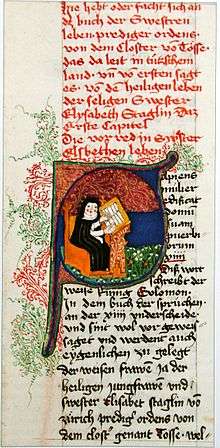 Hie hebt oder facht sich an
dz buch der Swestren
leben prediger ordens
von dem Closter vō Tösse
das da leit in türkschem
land · vn̄ võ ersten sagt
es · võ dē heiligen leben
der seligen Swester
Elysabeth Staglin Daz
Erste Capitel
Die vor red in Swyster
Elsbethen leben
Sapiens
mulier
edificat
domū
suam
puerbi
orum
xiiij
Diß wort
schreibt der
weise künig Solomon
In dem buch der sprüchen
an der xiiij underscheide
und sint wol vor geweis
saget und werdent auch
eygenlichen zu gelegt
der weisen frawe ja der
heiligen jungfrawē und
swester Elisabet staglin vō
zürich prediger ordens von
dem closter genant Tösse · wol